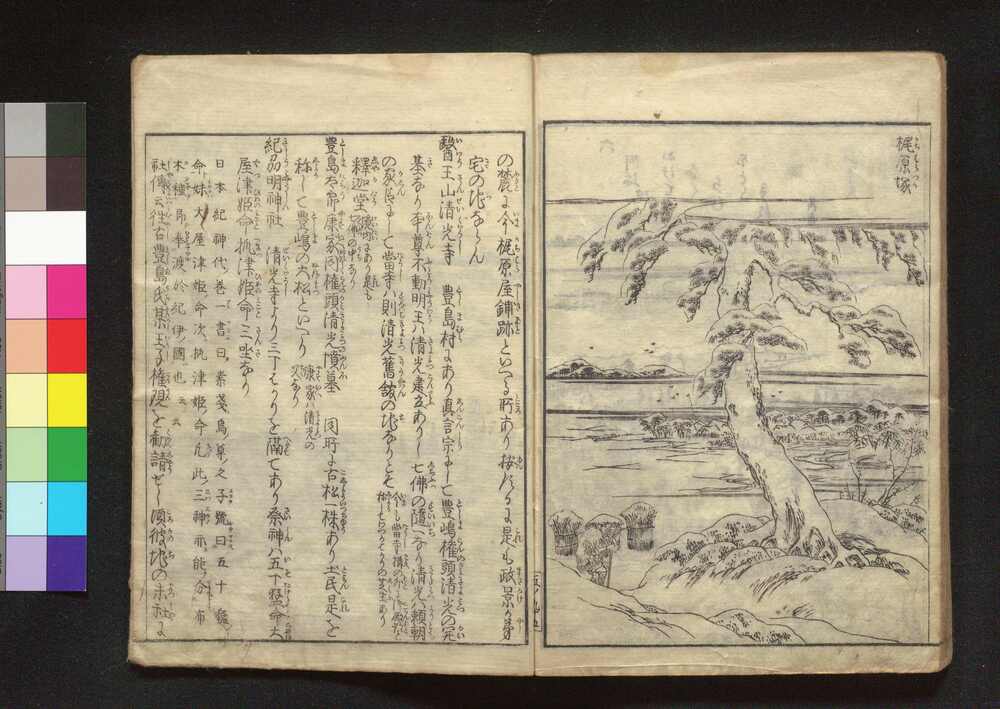 梶原塚
の麓に今梶原屋鋪跡といへる所あり按ずるに是も政景が第
宅の地ならん
醫王山清光寺 豊島村にあり真言宗にして豊嶋権頭清光の開
基なり本尊不動明王ハ清光建立ありし七佛の随一なり清光ハ頼朝
の家臣にして當寺ハ則清光舊舘の地なりとそ
釋迦堂
豊島太郎康家同権頭清光墳墓 同所に古松一株あり土民是を
称して豊嶋の大松といへり 康家ハ清光の父なり
紀州明神社 清光寺より三丁ばかりを隔てあり祭神ハ五十猛命大
屋津姫命抓津姫命三坐なり
日本紀神代巻一書曰素戔烏尊之子號曰五十猛
命妹大屋津姫命次抓津姫命凡此三神亦能分布
木種即奉渡於紀伊國也云云
社傳云往古豊島氏某王子権現を勧請せし頃彼地の末社に